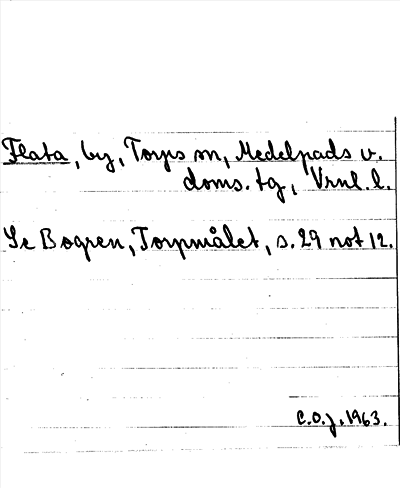 Flata, by, Torps sn, Medelpads v.
doms. tg, Vrnl. l.
Se Bogren, Torpmålet, s. 29 not 12.
C.O.J. 1963.